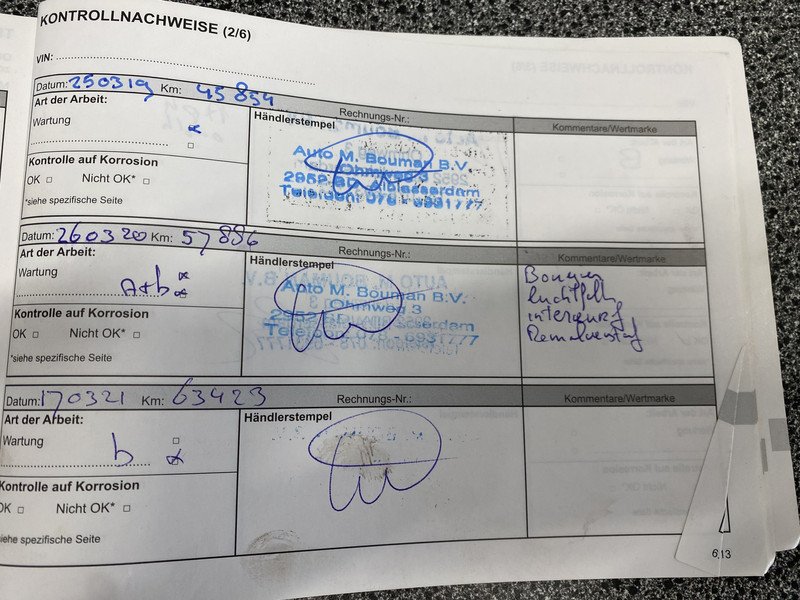 KONTROLLNACHWEISE (2/6)
VIN:
Datum: 250319 Km: 45854
Art der Arbeit: Rechnungs-Nr.:
Wartung Händlerstempel Kommentare/Wertmarke
Auto M. Bouman B.V.
Ohmweg 3
Kontrolle auf Korrosion 2952 BD Alblasserdam
OK Nicht OK* Telefoon: 078 - 6931777
*siehe spezifische Seite
Datum: 260320 Km: 57886
Art der Arbeit: Rechnungs-Nr.: Kommentare/Wertmarke
Wartung Händlerstempel
A+b Auto M. Bouman B.V.
Ohmweg 3
Kontrolle auf Korrosion Alblasserdam
OK Nicht OK* Telefoon: 6931777
*siehe spezifische Seite
Datum: 170321 Km: 63423
Art der Arbeit: Rechnungs-Nr.: Kommentare/Wertmarke
Wartung Händlerstempel
b
Kontrolle auf Korrosion
OK Nicht OK*
siehe spezifische Seite
613